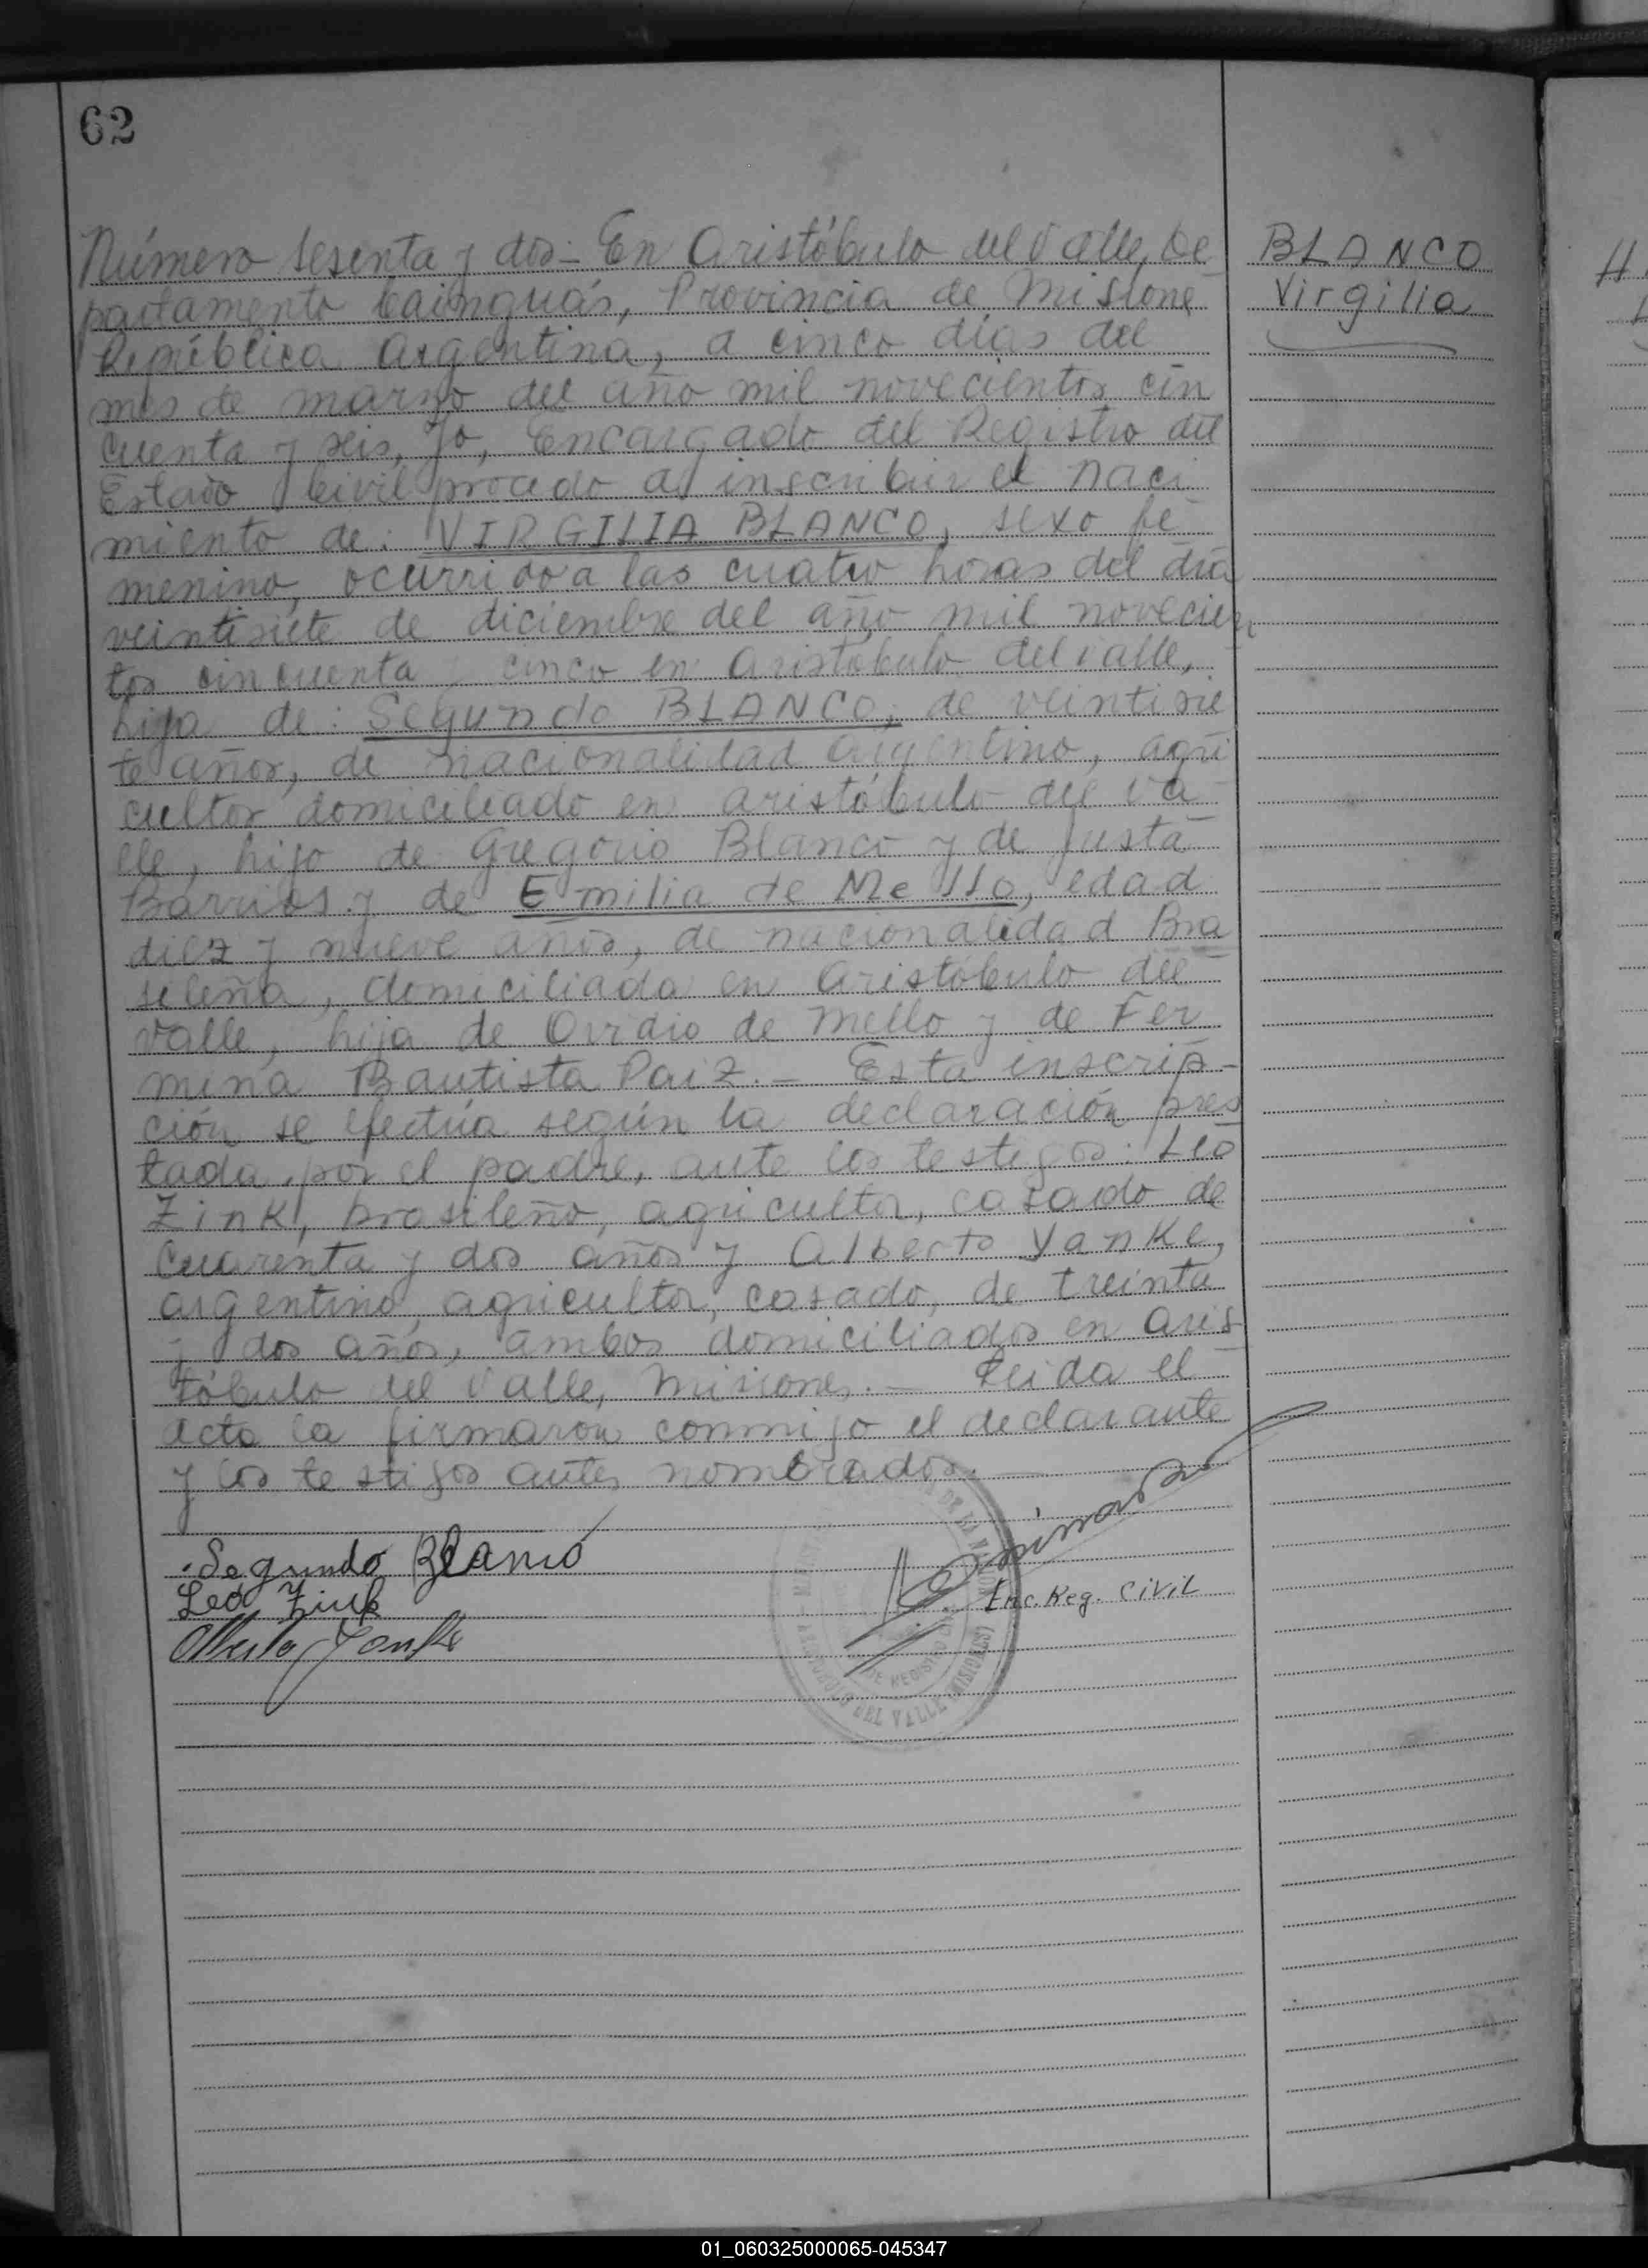 62
Número sesenta y dos - En Aristóbulo del Valle, De
partamento Cainguás, Provincia de Misione
República Argentina, a cinco días del
mes de marzo del año mil novecientos cin
cuenta y seis, Yo, Encargado del Registro del
Estado Civil procedo a inscribir el naci
miento de: VIRGILIA BLANCO, sexo fe
menino, ocurrido a las cuatro horas del día
veintisiete de diciembre del año mil novecien
tos cincuenta y cinco en Aristóbulo del Valle,
hija de: Segundo BLANCO, de veintisie
te años, de nacionalidad argentino, agri
cultor domiciliado en Aristóbulo del Va
lle, hijo de Gregorio Blanco y de Justa
Barrios y de Emilia de Mello, edad
diez y nueve años, de nacionalidad Bra
sileña, domiciliada en Aristóbulo del
Valle, hija de Ovidio de Mello y de Fer
mina Bautista Paiz. - Esta inscrip-
ción se efectúa según la declaración pres
tada por el padre, ante los testigos: Leo
Zink, brasileño, agricultor, casado de
cuarenta y dos años y Alberto Yanke,
argentino, agricultor, casado, de treinta
y dos años, ambos domiciliados en Aris
tóbulo del Valle, Misiones. - Leida el
acta la firmaron conmigo el declarante
y los testigos antes nombrados. -
Segundo Blanco
Leo Zink
Alberto Yanke
Enc. Reg. Civil
DEL VALLE (MISIONES)
BLANCO
Virgilia
01_060325000065-045347